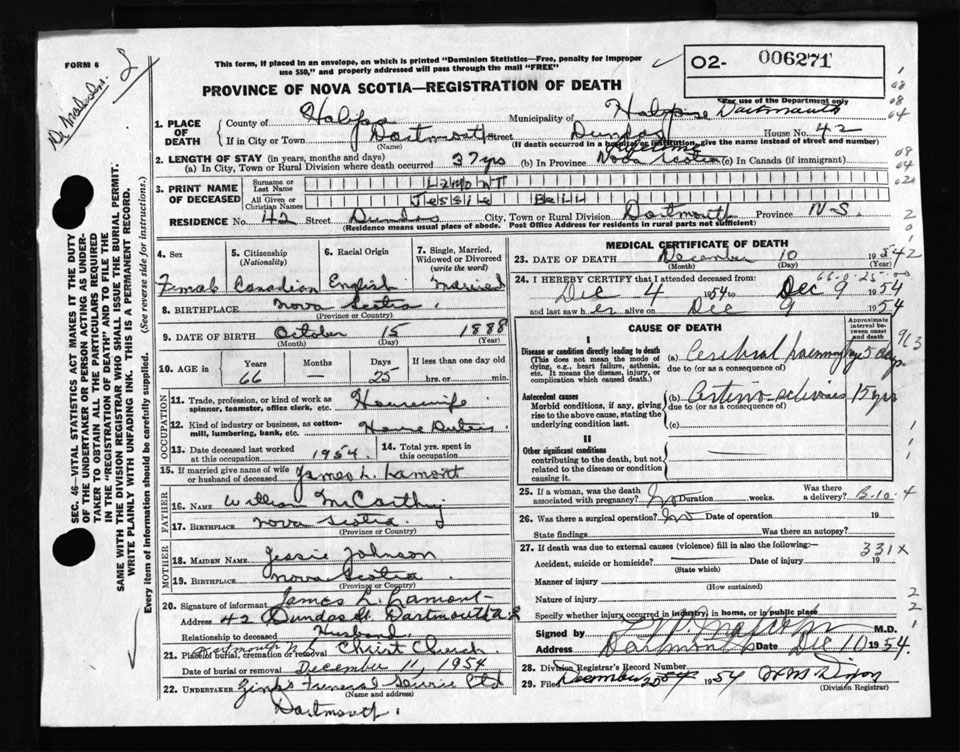 FORM 6
Dr Malcolm
This form, if placed in an envelope, on which is printed "Dominion Statistics—Free, penalty for improper
use $50," and properly addressed will pass through the mail "FREE"
O2- 006271
For use of the Department only
PROVINCE OF NOVA SCOTIA—REGISTRATION OF DEATH
1. PLACE OF DEATH
County of Halifax Municipality of
If in City or Town Dartmouth Street Dundas House No. 42
(Name) (If death occurred in a hospital or institution, give the name instead of street and number)
2. LENGTH OF STAY (in years, months and days)
(a) In City, Town or Rural Division where death occurred 37 yrs (b) In Province Nova Scotia (c) In Canada (if immigrant)
3. PRINT NAME OF DECEASED
Surname or Last Name LAMONT
All Given or Christian Names Jessie Bell
RESIDENCE No. 42 Street Dundas City, Town or Rural Division Dartmouth Province N-S.
(Residence means usual place of abode. Post Office Address for residents in rural parts not sufficient)
4. Sex
5. Citizenship (Nationality)
6. Racial Origin
7. Single, Married, Widowed or Divorced (write the word)
Female Canadian English Married
8. BIRTHPLACE Nova Scotia
(Province or Country)
9. DATE OF BIRTH October 15 1888
(Month) (Day) (Year)
10. AGE in Years Months Days If less than one day old
66 — 25 hrs. or min.
OCCUPATION
11. Trade, profession, or kind of work as spinner, teamster, office clerk, etc. Housewife
12. Kind of industry or business, as cotton-mill, lumbering, bank, etc. Home Duties
13. Date deceased last worked at this occupation 1954.
14. Total yrs. spent in this occupation
15. If married give name of wife or husband of deceased James L. Lamont
FATHER
16. NAME William McCarthy
17. BIRTHPLACE Nova Scotia.
(Province or Country)
MOTHER
18. MAIDEN NAME Jessie Johnson
19. BIRTHPLACE Nova Scotia
(Province or Country)
20. Signature of informant James L. Lamont
Address 42 Dundas St. Dartmouth
Relationship to deceased Husband.
21. Place of burial, cremation or removal Dartmouth Christ Church
Date of burial or removal December 11, 1954
22. UNDERTAKER Zink's Funeral Service Ltd
(Name and address)
Dartmouth.
MEDICAL CERTIFICATE OF DEATH
23. DATE OF DEATH December 10
(Month) (Day) (Year)
66-0-25
24. I HEREBY CERTIFY that I attended deceased from:
Dec 4 1954 to Dec 9 1954
and last saw her alive on Dec 9 1954
CAUSE OF DEATH
Approximate interval between onset and death
I
Disease or condition directly leading to death
(This does not mean the mode of dying, e.g., heart failure, asthenia, etc. It means the disease, injury, or complication which caused death.)
(a) Cerebral haemorrhage 5 days
due to (or as a consequence of)
Antecedent causes
Morbid conditions, if any, giving rise to the above cause, stating the underlying condition last.
(b) Arterio-sclerosis 15 yrs
due to (or as a consequence of)
(c)
II
Other significant conditions
contributing to the death, but not related to the disease or condition causing it.
25. If a woman, was the death associated with pregnancy? No Duration weeks. Was there a delivery?
26. Was there a surgical operation? No Date of operation 19
State findings Was there an autopsy?
27. If death was due to external causes (violence) fill in also the following:—
331X
Accident, suicide or homicide? Date of injury 19
(State which)
Manner of injury
(How sustained)
Nature of injury
Specify whether injury occurred in industry, in home, or in public place
Signed by M.D.
Address Dartmouth Date Dec 10 1954
28. Division Registrar's Record Number
29. Filed December 1954
(Division Registrar)
SEC. 46—VITAL STATISTICS ACT MAKES IT THE DUTY
OF THE UNDERTAKER OR PERSON ACTING AS UNDER-
TAKER TO OBTAIN ALL THE PARTICULARS REQUIRED
IN THE "REGISTRATION OF DEATH" AND TO FILE
SAME WITH THE DIVISION REGISTRAR WHO SHALL ISSUE THE BURIAL PERMIT.
WRITE PLAINLY WITH UNFADING INK. THIS IS A PERMANENT RECORD.
Every item of information should be carefully supplied. (See reverse side for instructions.)